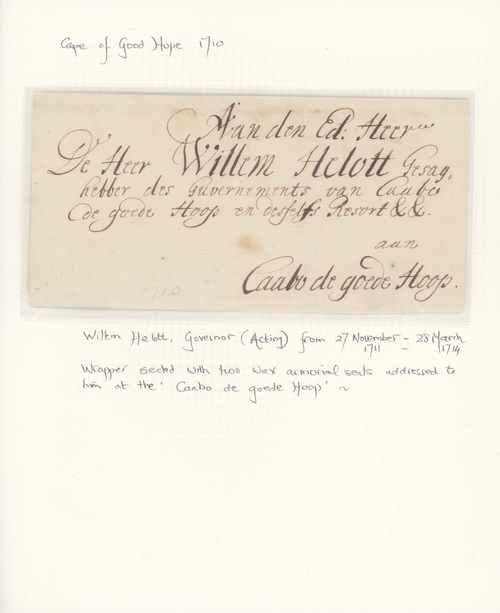 Cape of Good Hope 1710
Aan den Ed: Heer
De Heer Willem Helott Gesag,
hebber des Guvernements van Caabo
de goede Hoop en desselfs Resort &&.
aan
Caabo de goede Hoop.
1710
Willem Helott, Governor (Acting) from 27 November 1711 - 28 March 1714
Wrapper sealed with two wax armorial seals addressed to
him at the 'Caabo de goede Hoop' ~